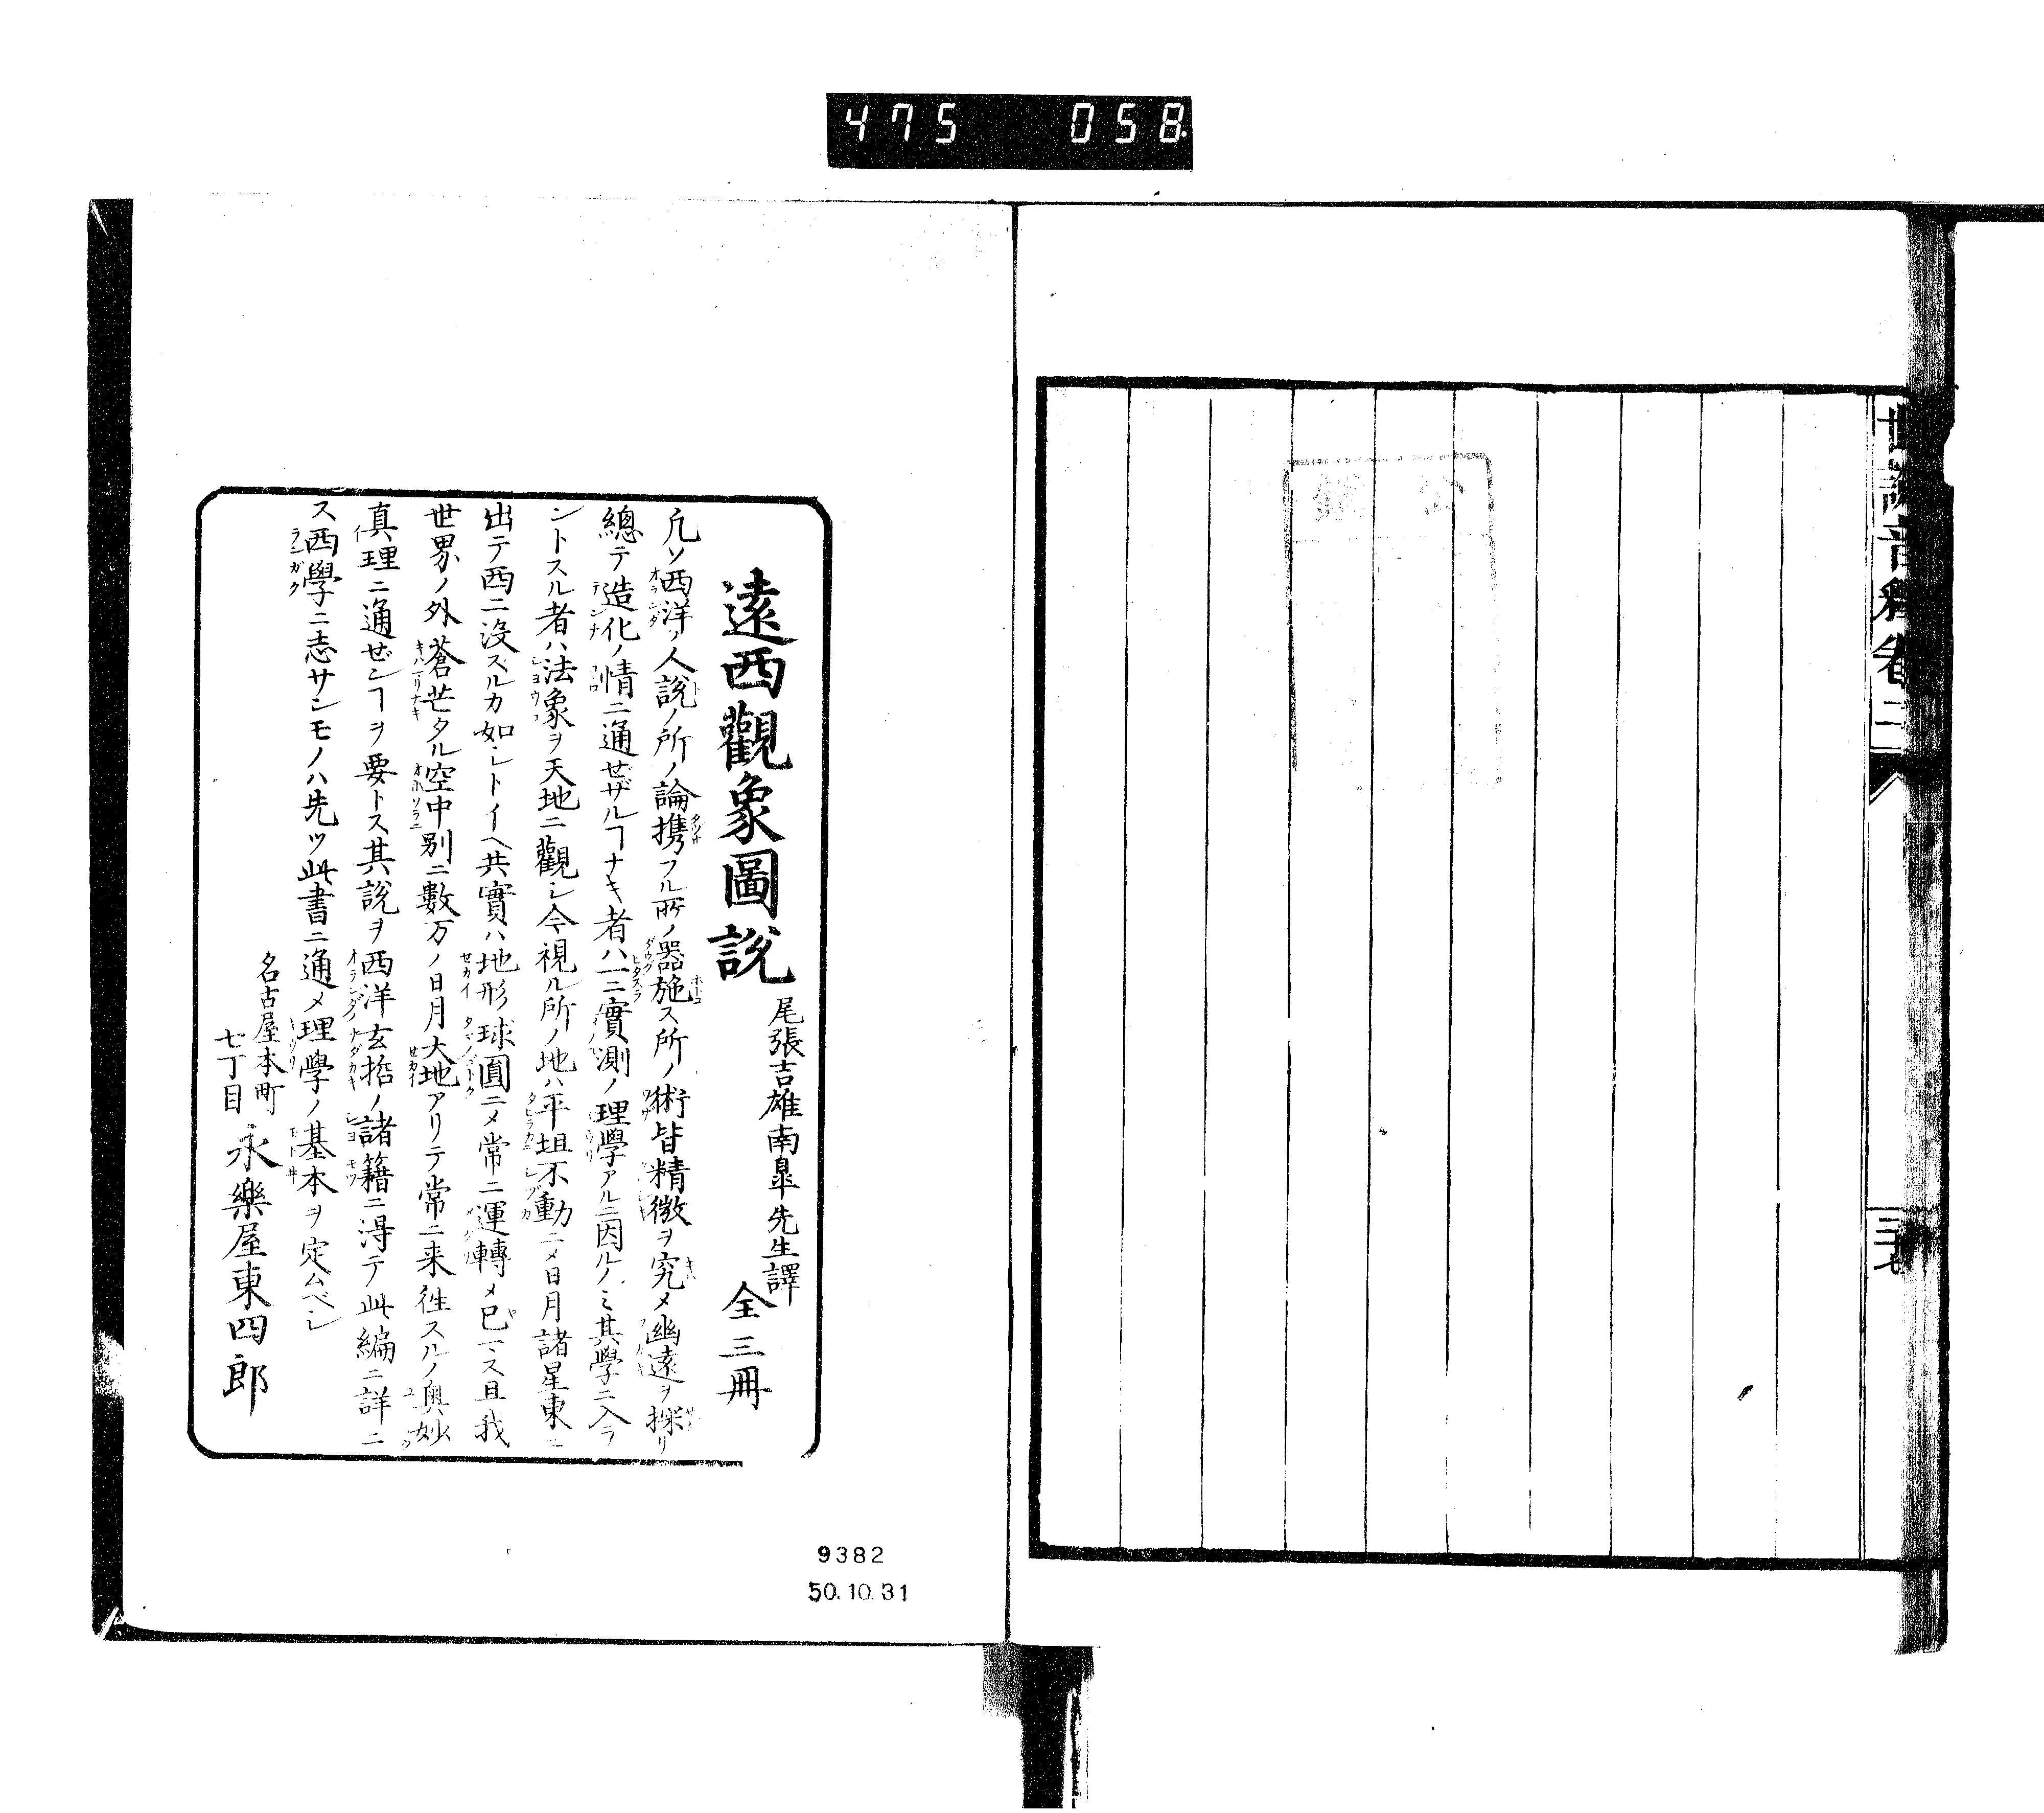 475 058
世說音釋卷二
三十七
遠西觀象圖說
尾張吉雄南皐先生譯
全三冊
凢ソ西洋ノ人說ノ所ノ論携フル所ノ器施ス所ノ術皆精微ヲ究メ幽遠ヲ探リ
總テ造化ノ情ニ通ゼザルヿナキ者ハ一ニ實測ノ理學アルニ因ルノミ其學ニ入ラ
ントスル者ハ法象ヲ天地ニ觀シ今視ル所ノ地ハ平坦不動ニメ日月諸星東ニ
出テ西ニ沒スルカ如シトイヘ共實ハ地形球圓ニメ常ニ運轉メ已マス且我
世界ノ外蒼芒タル空中別ニ數万ノ日月大地アリテ常ニ来徃スルノ奥妙
真理ニ通ゼンヿヲ要トス其說ヲ西洋玄哲ノ諸籍ニ淂テ此編ニ詳ニ
ス西學ニ志サンモノハ先ツ此書ニ通メ理學ノ基本ヲ定ムベシ
名古屋本町
七丁目
永樂屋東四郎
9382
50.10.31